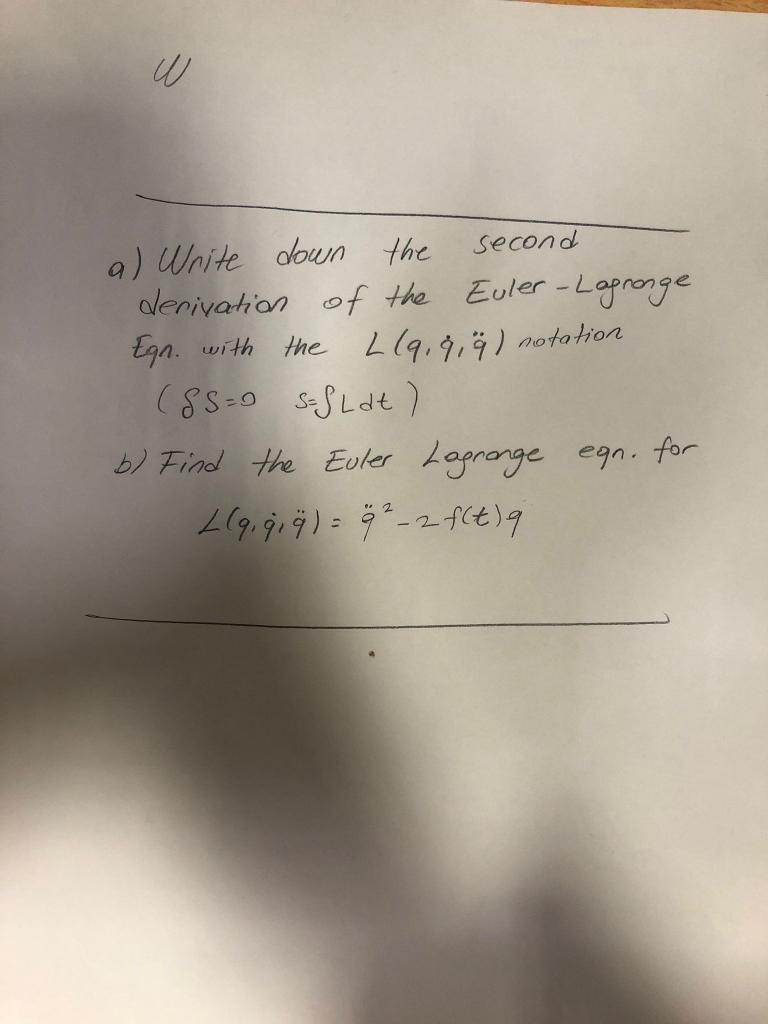 W
a) Write down the second
derivation of the Euler-Lagrange
Eqn. with the L(q, q̇, q̈) notation
(δS=0 S=∫Ldt)
b) Find the Euler Lagrange eqn. for
L(q, q̇, q̈) = q̈² - 2f(t)q